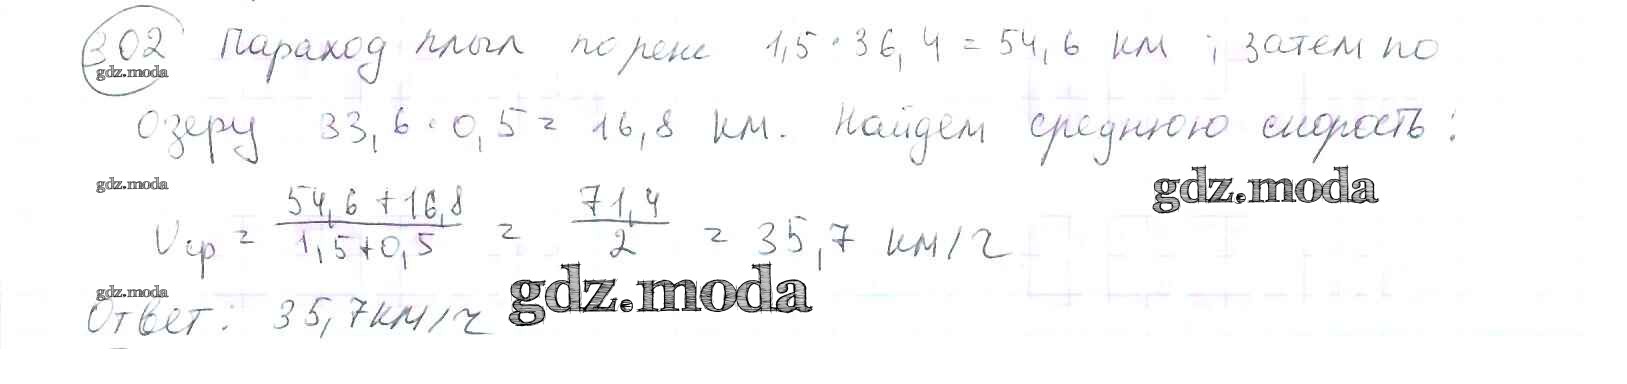 302 Параход плыл по реке 1,5 · 36,4 = 54,6 км ; затем по
gdz.moda
озеру 33,6 · 0,5 = 16,8 км. Найдем среднюю скорость:
gdz.moda
gdz.moda
Vср = (54,6 + 16,8)/(1,5+0,5) = 71,4/2 = 35,7 км/ч
gdz.moda
gdz.moda
Ответ: 35,7км/ч